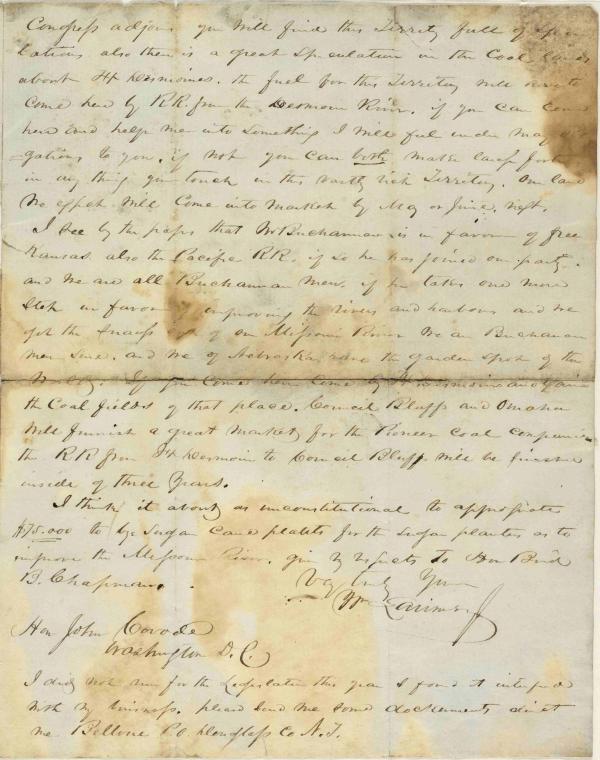 Congress adjorns you will find this Territy full of specu
lations also there is a great speculation in the Coal lands
about Ft Desmoines. the fuel for this Territory will have to
come here by R.R. from the Desmoin River. if you can come
here and help me into something I will feel under many obli
=gations to you. if not you can both make large fort
in any thing you touch in this vastly rich Territory. Our land
no effect will come into market by May or June next.
I see by the papers that Mr Buchannan is in favour of free
Kansas also the Pacific R.R. if so he has joined our party.
and we are all Buchannan men. if he takes one more
Step in favour of improving the rivers and harbours and we
get the Snaggs out of our Missouri River We are Buchanan
men sure. and we of Nebraska, have the garden spot of the
World. If you come here come by Ft Desmoine and
the Coal fields of that place. Council Bluffs and Omaha
will furnish a great market for the Pioneer Coal companies
the R.R from Ft Desmoin to Council Bluff will be finished
inside of three Years.
I think it about as unconstitutional to appropriate
$75.000 to buy Sugar Cane plants for the Sugar planters as to
improve the Missouri River. give my regards to Hon Bird
B. Chapman.
Very truly Yours
Wm Larimer Jr
Hon John Covode
Washington D.C.
I did not run for the Legislature this year I found it interfered
with my business. please send me some documents direct
me Bellvue P.O. Douglass Co N.T.